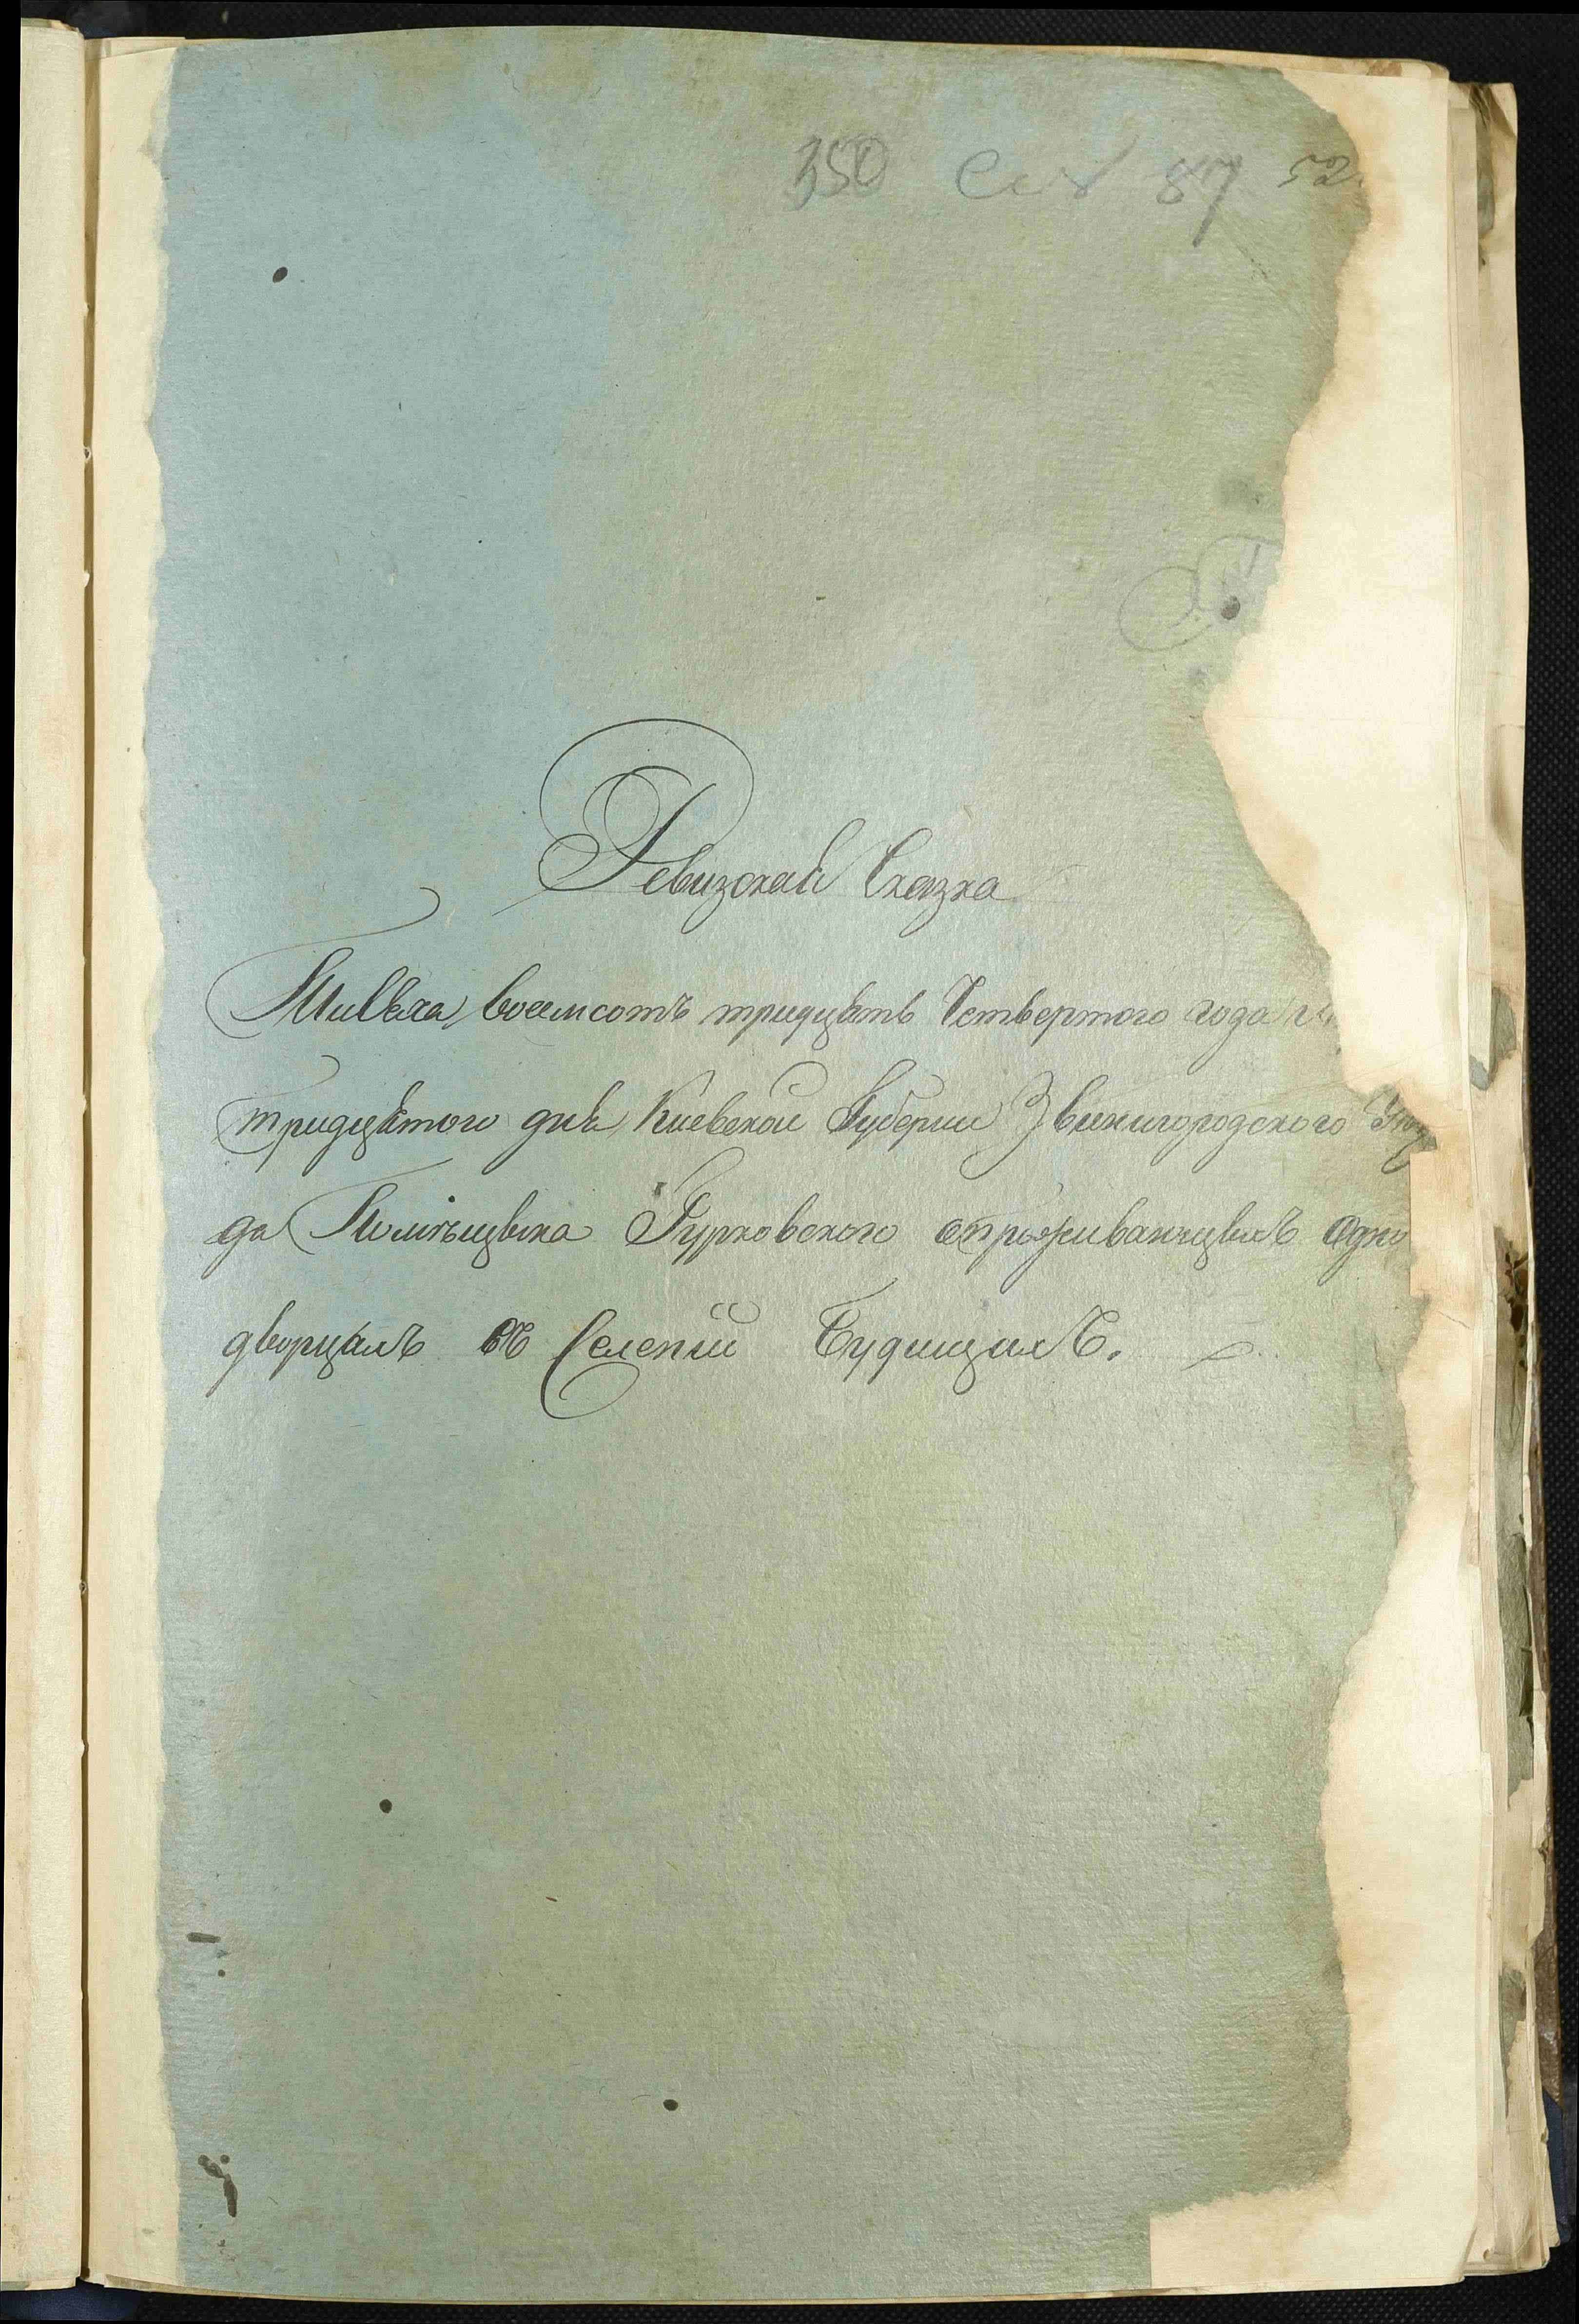 350 87 52
Ревизская Сказка
Тысяча восемсотъ тридцать Четвертого года
тридцятого дня Киевской Губернии Звенигородского Уѣз
да Помѣщика Гурковского опроживающихъ Одно
дворцахъ въ Селеніи Будищахъ.